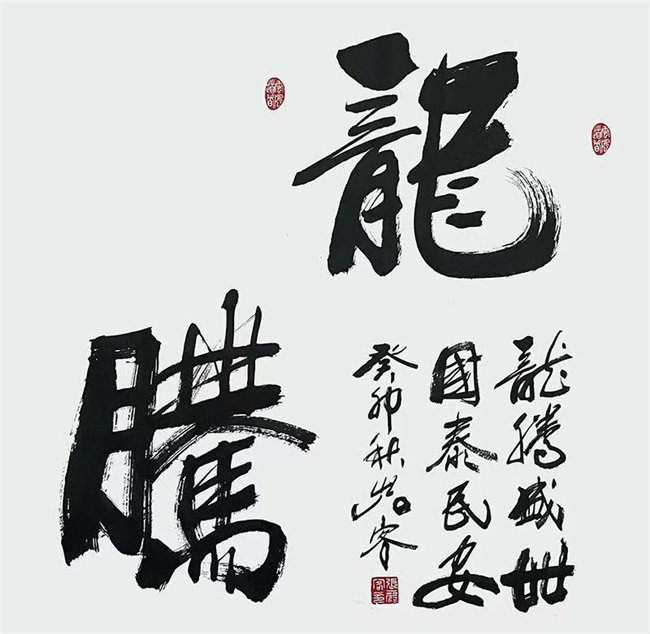 龍
騰
龍騰盛世
國泰民安
癸卯秋